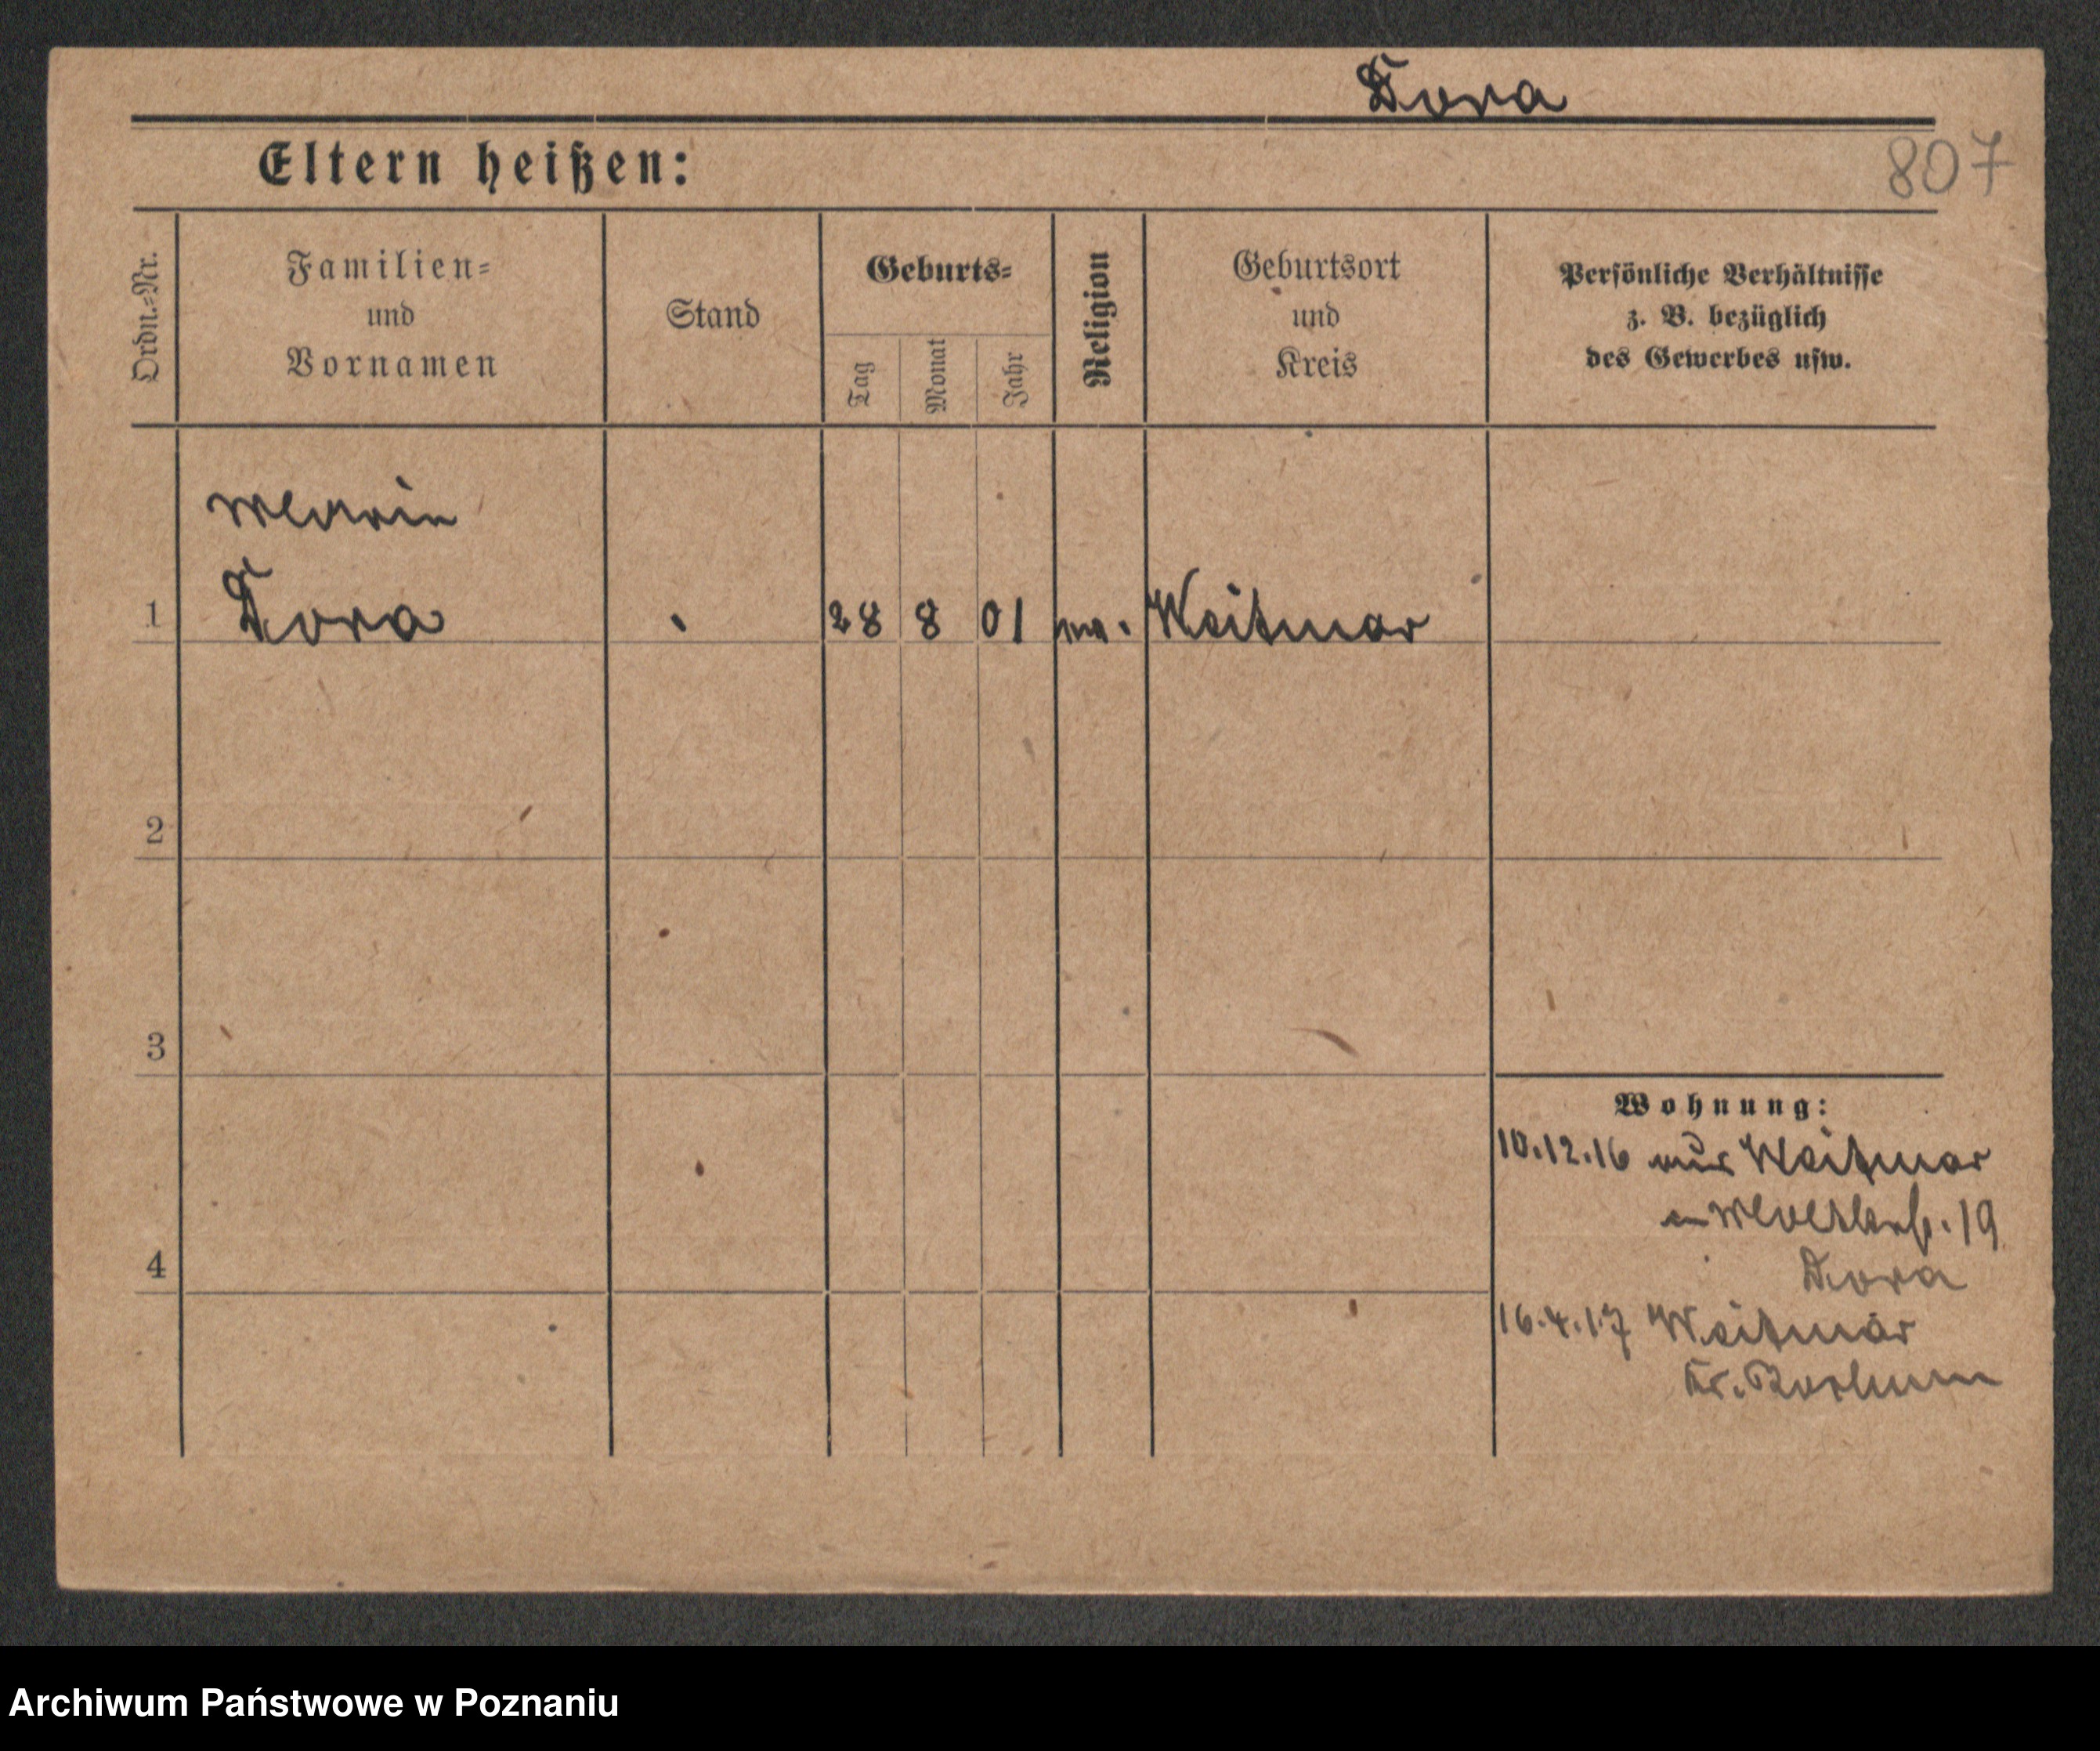 Dora
Eltern heißen:
807
Ordn.=Nr.
Familien=
und
Vornamen
Stand
Geburts=
Tag
Monat
Jahr
Religion
Geburtsort
und
Kreis
Persönliche Verhältnisse
z. B. bezüglich
des Gewerbes usw.
Marie
1 Dora 28 8 01 Weitmar
2
3
4
Wohnung:
10.12.16 aus Weitmar
19
Dora
16.4.17 Weitmar
Kr. Bochum
Archiwum Państwowe w Poznaniu